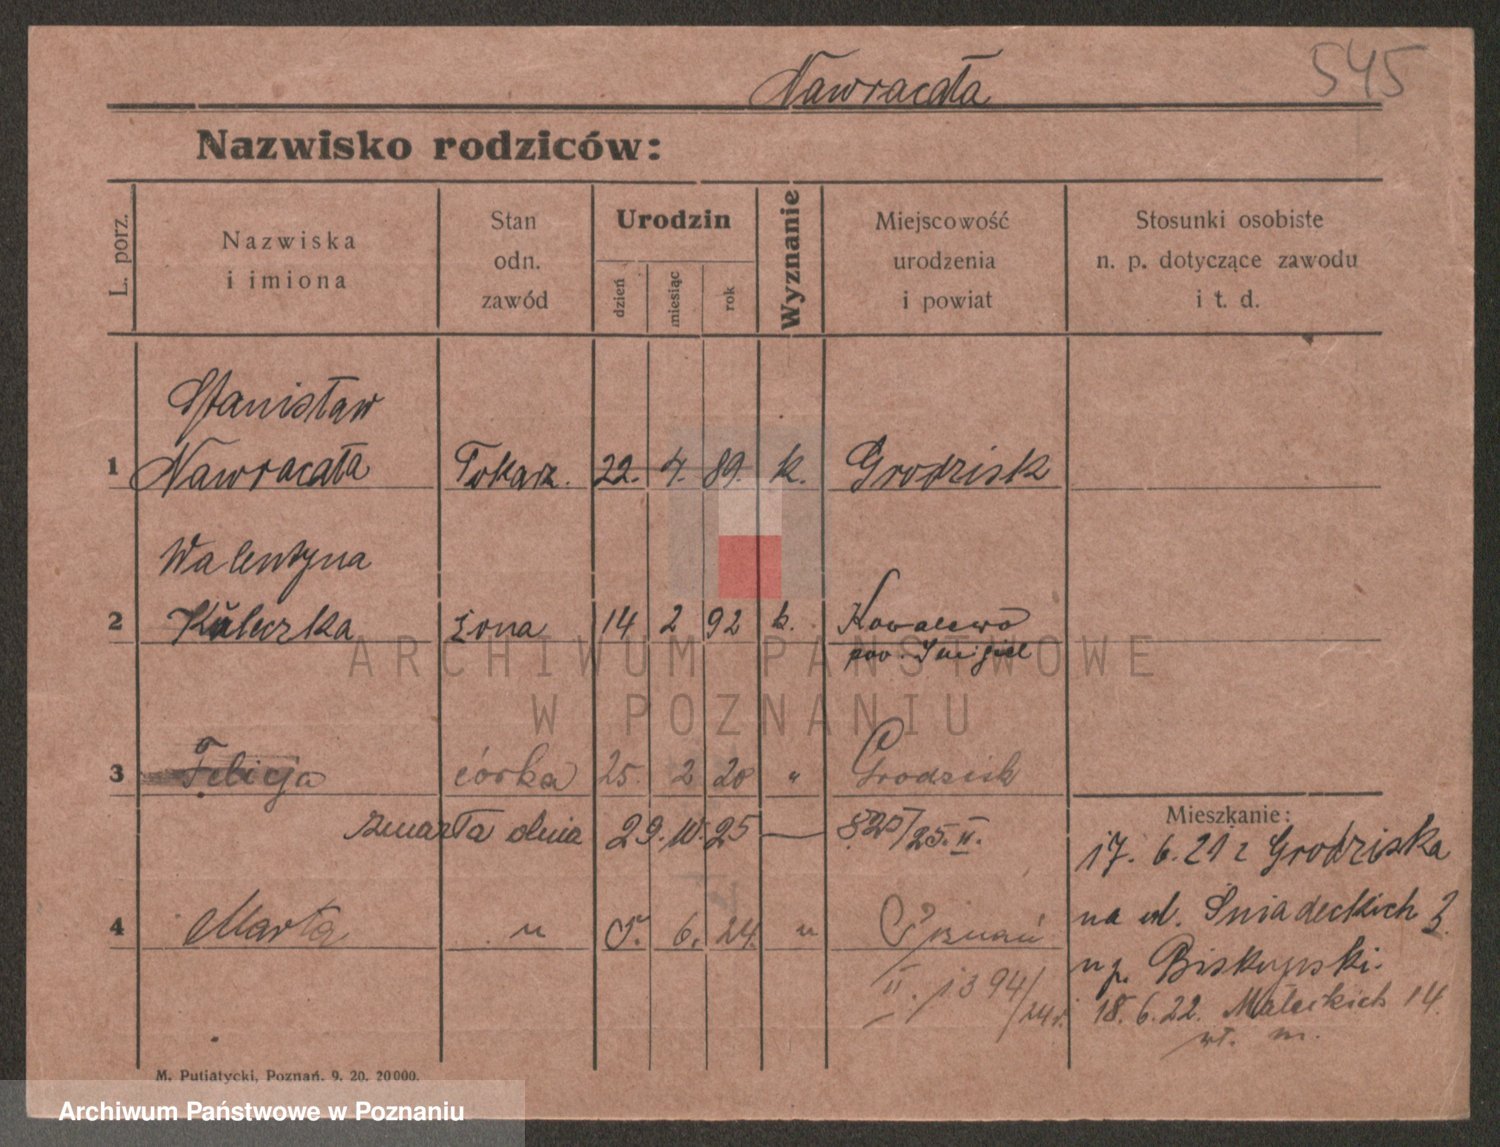 545
Nawracała
Nazwisko rodziców:
L. porz.
Nazwiska
i imiona
Stan
odn.
zawód
Urodzin
dzień
miesiąc
rok
Wyznanie
Miejscowość
urodzenia
i powiat
Stosunki osobiste
n. p. dotyczące zawodu
i t. d.
Stanisław
1 Nawracała Tokarz. 22. 4. 89. k. Grodzisk
Walentyna
2 Kuleczka żona 14 2 92 k. Kowalewo
pow. Śmigiel
3 Felicja córka 25. 2 20 " Grodzisk
zmarła dnia 29. 10. 25 — 820/25. II.
4 Marta " 5. 6. 24. " Poznań
II. 1394/24r.
Mieszkanie:
17. 6. 21 z Grodziska
na ul. Śniadeckich 3.
u p. Biskupski.
18. 6. 22. Małeckich 14.
wł. m.
M. Putiatycki, Poznań. 9. 20. 20000.
ARCHIWUM PAŃSTWOWE
W POZNANIU
Archiwum Państwowe w Poznaniu